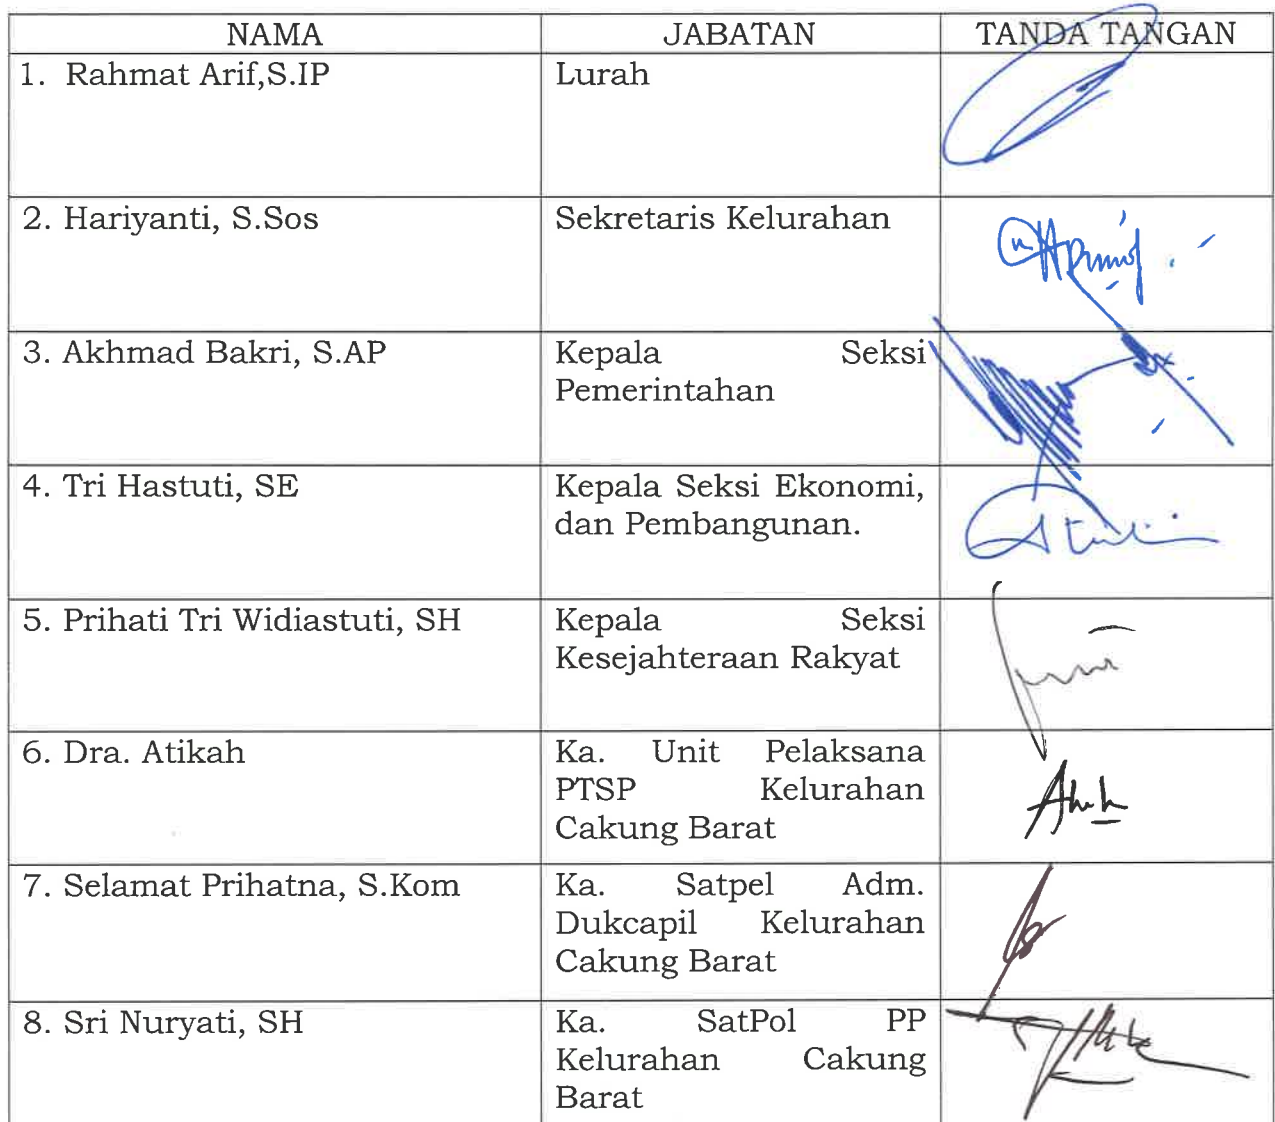 NAMA JABATAN TANDA TANGAN
1. Rahmat Arif,S.IP Lurah
2. Hariyanti, S.Sos Sekretaris Kelurahan
3. Akhmad Bakri, S.AP Kepala Seksi
Pemerintahan
4. Tri Hastuti, SE Kepala Seksi Ekonomi,
dan Pembangunan.
5. Prihati Tri Widiastuti, SH Kepala Seksi
Kesejahteraan Rakyat
6. Dra. Atikah Ka. Unit Pelaksana
PTSP Kelurahan
Cakung Barat
7. Selamat Prihatna, S.Kom Ka. Satpel Adm.
Dukcapil Kelurahan
Cakung Barat
8. Sri Nuryati, SH Ka. SatPol PP
Kelurahan Cakung
Barat